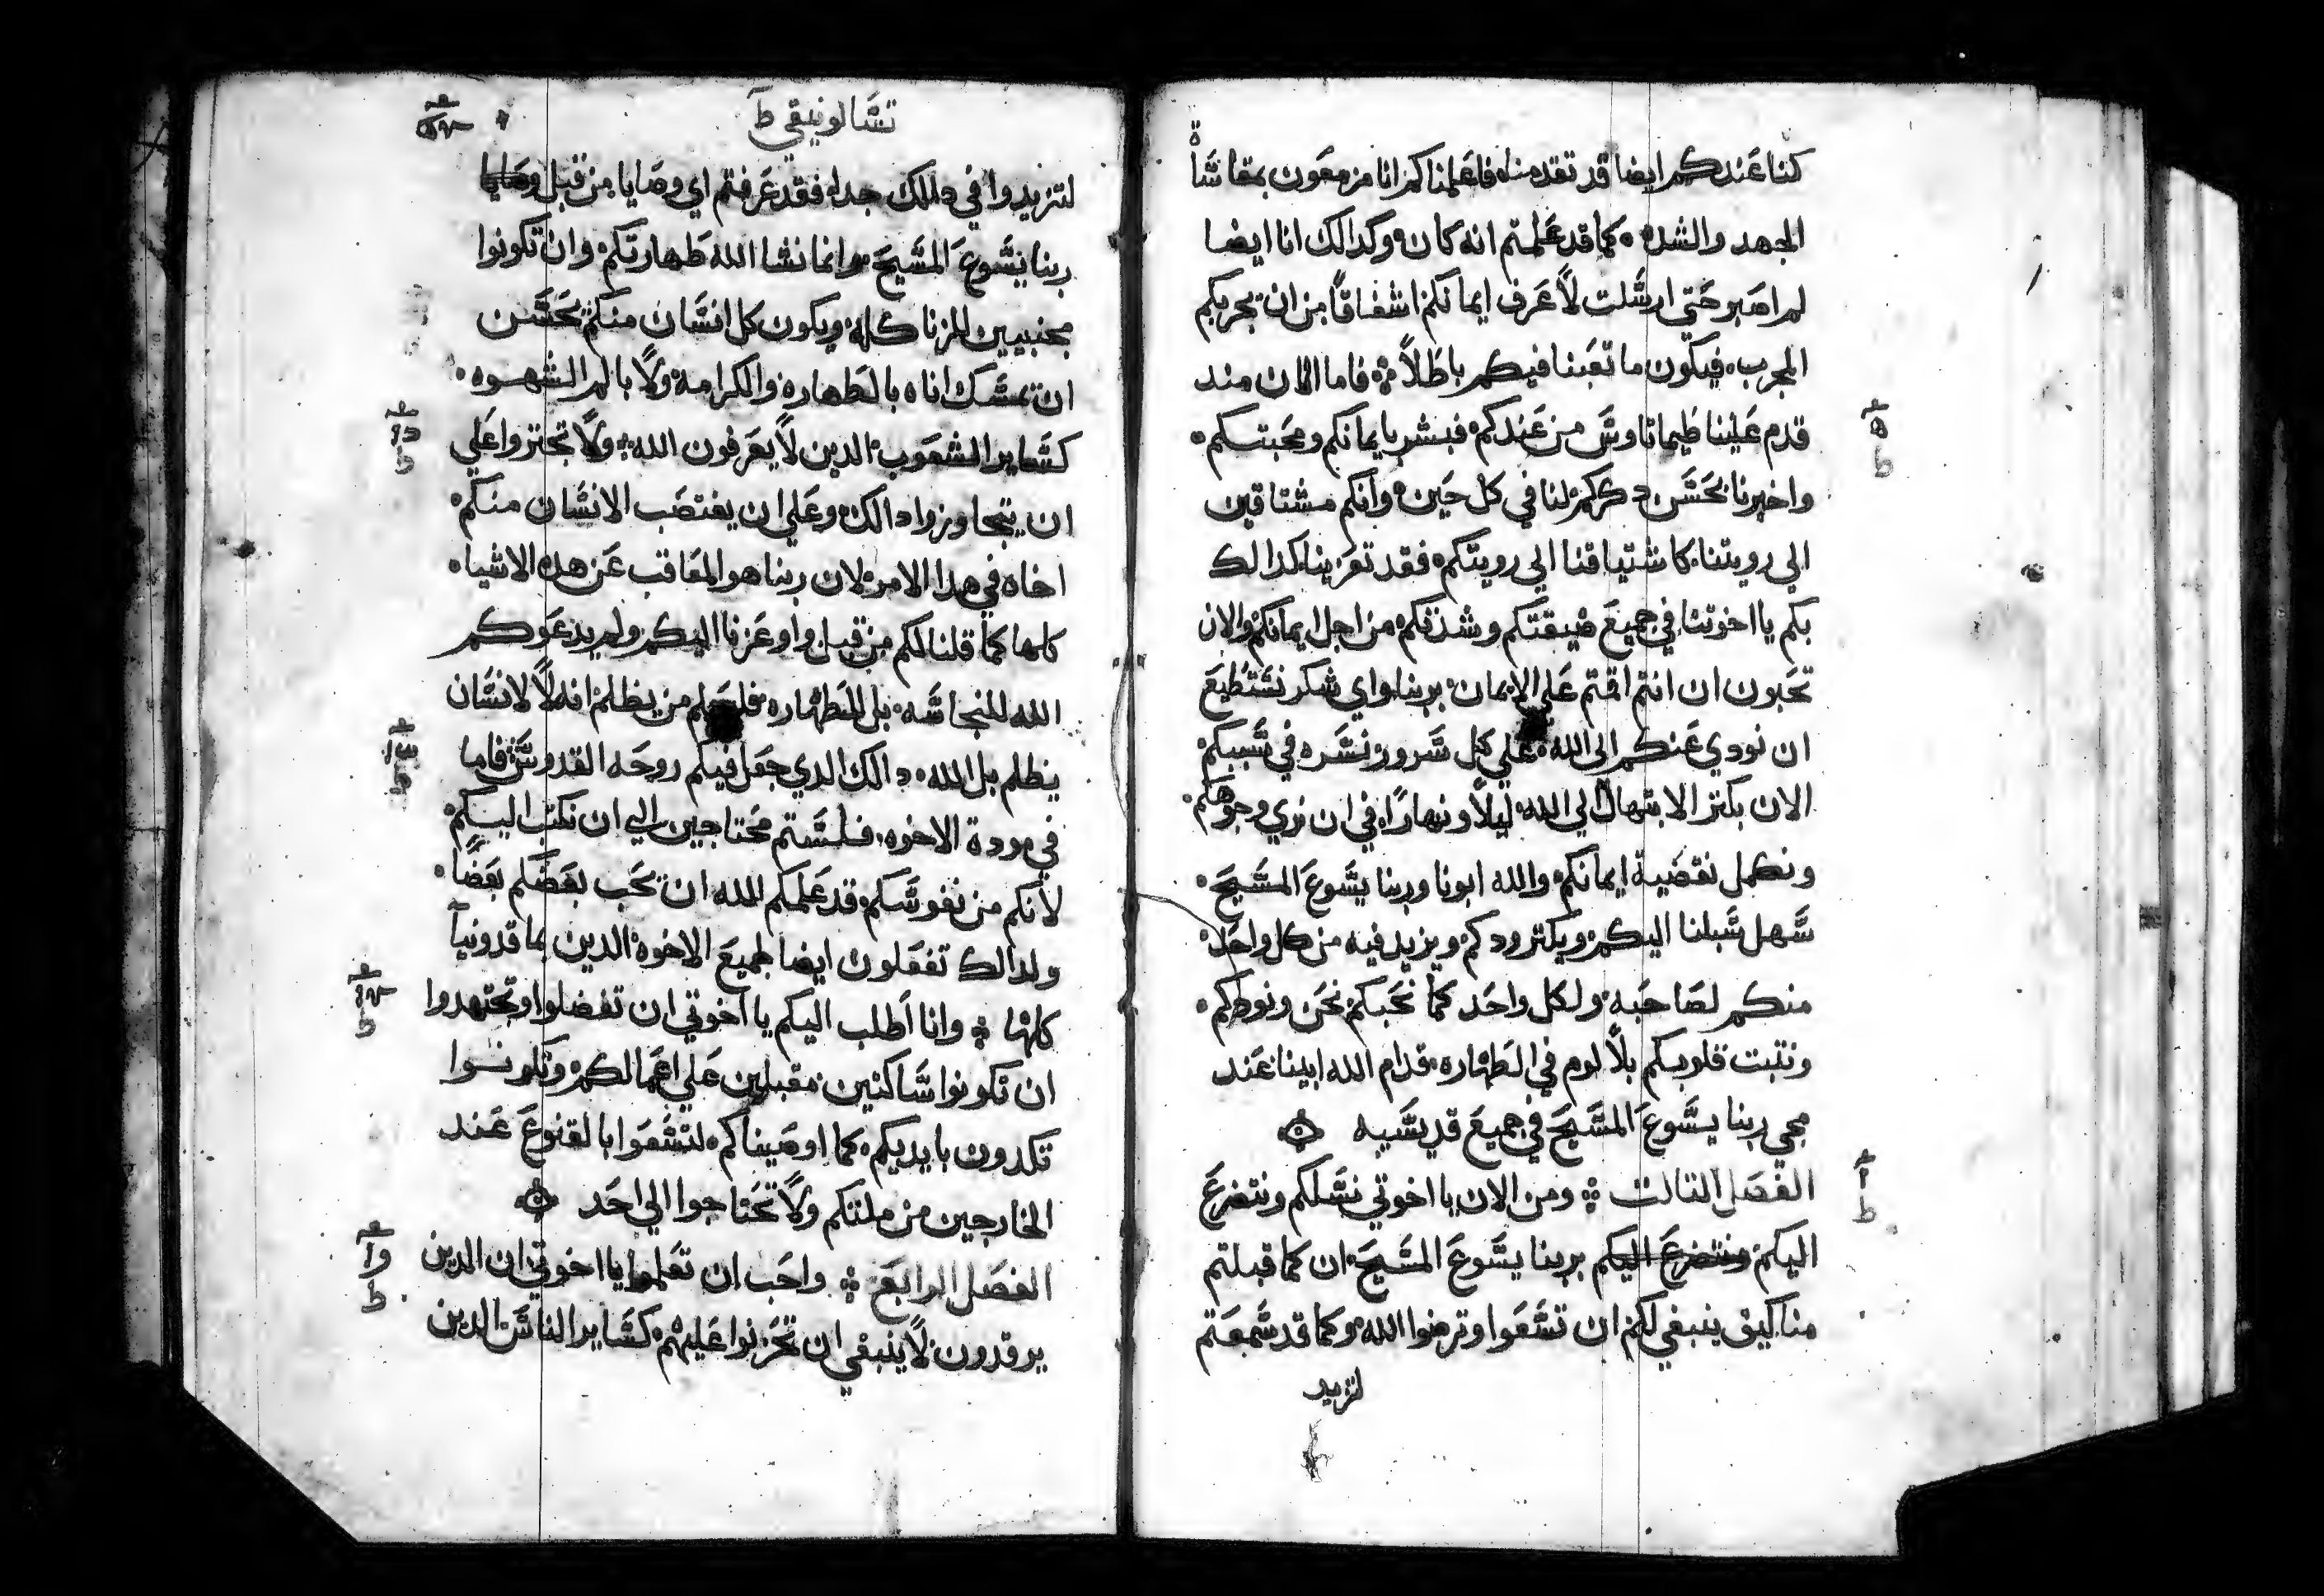 كنا عندكم ايضا قد تقدمناه فاعلمناكم انا مزمعون بمقاساة
الجهد والشده كما قد علمتم انه كان وكدالك انا ايضا
لم اصبر حتي ارسلت لاعرف ايمانكم اشفاقا من ان يجربكم
المجرب فيكون ما تعبنا فيكم باطلا فاما الان مند
قدم علينا طيماتاوس من عندكم فبشر بايمانكم ومحبتكم
واخبرنا بحسن دكركم لنا في كل حين وانكم مشتاقين
الي رويتنا كاشتياقنا الي رويتكم فقد تعزينا كدالك
بكم يا اخوتنا في جميع ضيقتكم وشدتكم من اجل ايمانكم والان
تحبون ان انتم اقمتم علي الايمان بربنا واي شكر نستطيع
ان نودي عنكم الي الله علي كل سرور نسره في سببكم
الان بكتر الابتهال الي الله ليلا ونهارا في ان نري وجوهكم
ونكمل نقضية ايمانكم والله ابونا وربنا يسوع المسيح
سهل سبلنا اليكم ويكتر ودكم ويزيد فيه من كل واحد
منكم لصاحبه ولكل واحد كما نحبكم نحن ونودكم
ونتبت قلوبكم بلا لوم في الطهاره قدام الله ابينا عند
مجي ربنا يسوع المسيح في جميع قديسيه
الفصل التالت ومن الان يا اخوتي نسلكم ونتضرع
اليكم ونتضرع اليكم بربنا يسوع المسيح ان كما قبلتم
منا كيف ينبغي لكم ان تسعوا وترضوا الله وكما قد سمعتم
لتزيد
تسالونيقي ط
لتزيدوا في دالك جدا فقد عرفتم اي وصايا من قبل وصايا
ربنا يسوع المسيح وانما نشا الله طهارتكم وان تكونوا
مجنبيين للزنا كله ويكون كل انسان منكم يحسن
ان يمسك اناه بالطهاره والكرامه ولا بالم الشهوه
كساير الشعوب الدين لا يعرفون الله ولا تجتروا علي
ان يتجاوزوا دالك وعلي ان يغتصب الانسان منكم
اخاه في هدا الامر لان ربنا هو المعاقب عن هده الاشياء
كلها كما قلنا لكم من قبل واوعزنا اليكم ولم يدعوكم
الله للنجاسه بل للطهاره فليعلم من يظلم انه لا لانسان
يظلم بل الله دالك الدي جعل فيكم روحه القدوس فاما
في مودة الاخوه فلستم محتاجين الي ان نكتب اليكم
لانكم من نفوسكم قد علمكم الله ان يحب بعضكم بعضا
ولدالك تفعلون ايضا بجميع الاخوه الدين بماقدونيا
كلها وانا اطلب اليكم يا اخوتي ان تفضلوا وتجتهدوا
ان تكونوا ساكنين مقبلين علي اعمالكم وتكونوا
تكدون بايديكم كما اوصيناكم لتسعوا بالقنوع عند
الخارجين من ملتكم ولا تحتاجوا الي احد
الفصل الرابع واحب ان تعلموا يا اخوتي ان الدين
يرقدون لا ينبغي ان تحزنوا عليهم كساير الناس الدين